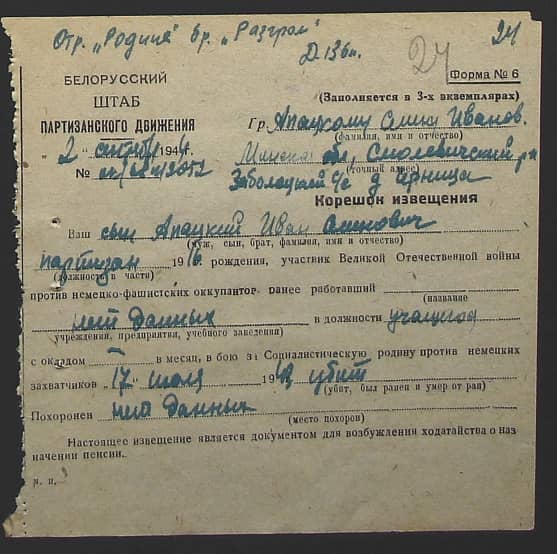 Отр. „Родина" бр. „Разгром"
Д 136 н.
24
24
БЕЛОРУССКИЙ
ШТАБ
ПАРТИЗАНСКОГО ДВИЖЕНИЯ
Форма № 6
(Заполняется в 3-х экземплярах)
Гр. Апацкому Иванов.
(фамилия, имя и отчество)
„ 2 " октября 1944 г.
Минская обл, Смолевичский р-н
(точный адрес)
№
Заболоцкий с/с д.
Корешок извещения
Ваш сын Апацкий Иван
(муж, сын, брат, фамилия, имя и отчество)
партизан 1916 рождения, участник Великой Отечественной войны
(должность в части)
против немецко-фашистских оккупантов ранее работавший
(название
нет данных в должности учащегося
учреждения, предприятия, учебного заведения)
с окладом – в месяц, в бою за Социалистическую родину против немецких
захватчиков „17" июля 194 убит
(убит, был ранен и умер от ран)
Похоронен нет данных
(место похорон)
Настоящее извещение является документом для возбуждения ходатайства о наз
начении пенсии.